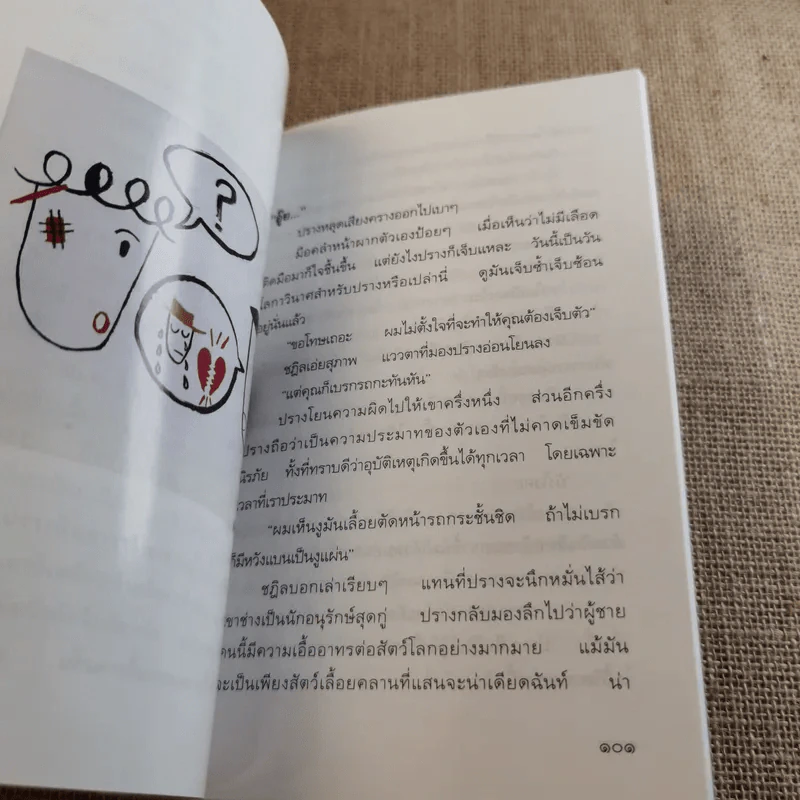 ?
"อุ๊ย..."
ปรางหลุดเสียงครางออกไปเบาๆ
มือคลำหน้าผากตัวเองป้อยๆ เมื่อเห็นว่าไม่มีเลือด
ติดมือมาก็ใจชื้นขึ้น แต่ยังไงปรางก็เจ็บแหละ วันนี้เป็นวัน
โลกาวินาศสำหรับปรางหรือเปล่านี่ ดูมันเจ็บซ้ำเจ็บซ้อน
อยู่นั่นแล้ว
"ขอโทษเถอะ ผมไม่ตั้งใจที่จะทำให้คุณต้องเจ็บตัว"
ชฎิลเอ่ยสุภาพ แววตาที่มองปรางอ่อนโยนลง
"แต่คุณก็เบรกรถกะทันหัน"
ปรางโยนความผิดไปให้เขาครึ่งหนึ่ง ส่วนอีกครึ่ง
ปรางถือว่าเป็นความประมาทของตัวเองที่ไม่คาดเข็มขัด
นิรภัย ทั้งที่ทราบดีว่าอุบัติเหตุเกิดขึ้นได้ทุกเวลา โดยเฉพาะ
เวลาที่เราประมาท
"ผมเห็นงูมันเลื้อยตัดหน้ารถกระชั้นชิด ถ้าไม่เบรก
ก็มีหวังแบนเป็นงูแผ่น"
ชฎิลบอกเล่าเรียบๆ แทนที่ปรางจะนึกหมั่นไส้ว่า
เขาช่างเป็นนักอนุรักษ์สุดกู่ ปรางกลับมองลึกไปว่าผู้ชาย
คนนี้มีความเอื้ออาทรต่อสัตว์โลกอย่างมากมาย แม้มัน
จะเป็นเพียงสัตว์เลื้อยคลานที่แสนจะน่าเดียดฉันท์ น่า
๑๐๑